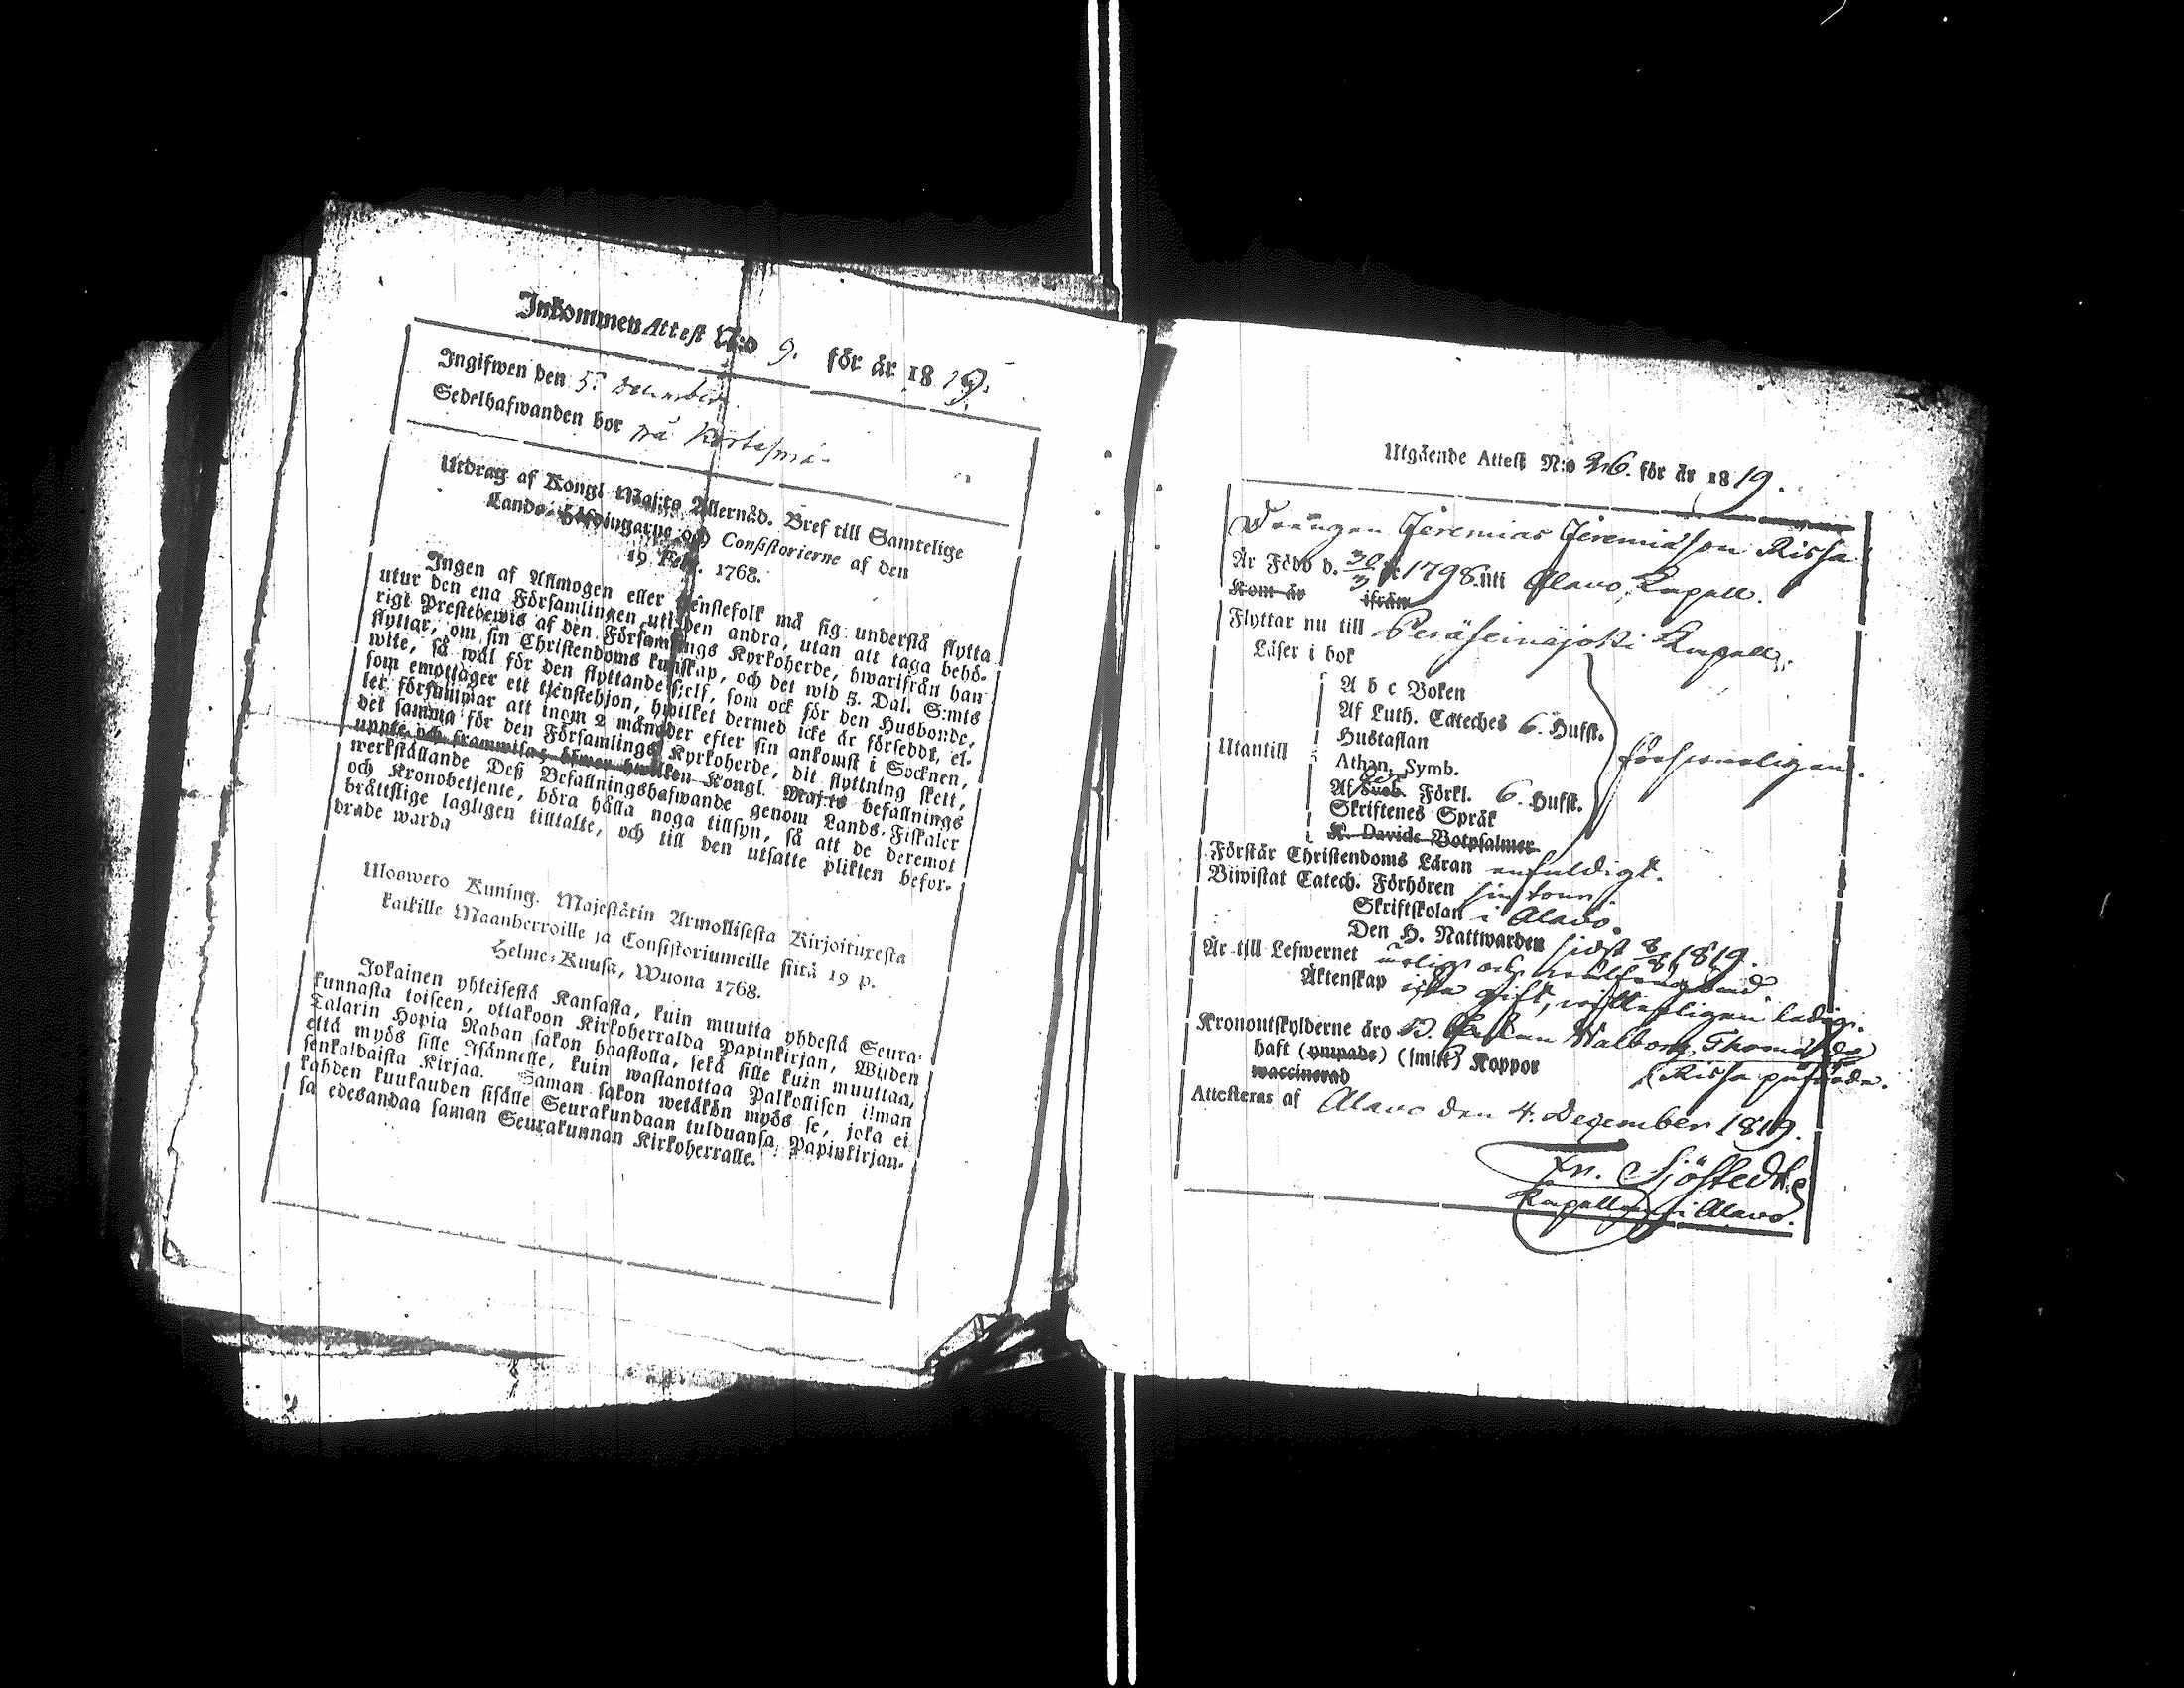 Inkommen Attest N:o 9. för år 18 19.
Ingifwen den 5. December.
Sedelhafwanden bor på
Utdrag af Kongl Maj:ts Allernåd. Bref till Samtelige
Lands-Höfdingarne och Consistorierne af den
19 Febr. 1768.
Ingen af Allmogen eller tjenstefolk må sig understå flytta
utur den ena Församlingen uti den andra, utan att taga behö-
rigt Prestebewis af den Församlings Kyrkoherde, hwarifrån han
flyttar, om sin Christendoms kunskap, och det wid 3. Dal. S:mts
wite, så wäl för den flyttande sjelf, som ock för den Husbonde,
som emottager ett tjenstehjon, hwilket dermed icke är förseddt, el-
ler försummar att inom 2 månader efter sin ankomst i Socknen,
det samma för den Församlings Kyrkoherde, dit flyttning skett,
uppte och framwisa; öfwer hwilken Kongl. Maj:ts befallnings
werkställande Deß Befallningshafwande genom Lands-Fiskaler
och Kronobetjente, böra hålla noga tillsyn, så att de deremot
bråttslige lagligen tilltalte, och till den utsatte plikten befor-
drade warda
Ulosweto Kuning. Majestätin Armollisesta Kirjoituxesta
kaikille Maanherroille ja Consistoriumeille siitä 19 p.
Helme-Kuusa, Wuona 1768.
Jokainen yhteisestä Kansasta, kuin muutta yhdestä Seura-
kunnasta toiseen, ottakoon Kirkoherralda Papinkirjan, Wiiden
Talarin Hopia Rahan sakon haastolla, sekä sille kuin muuttaa,
että myös sille Isännelle, kuin wastanottaa Palkollisen ilman
senkaldaista Kirjaa. Saman sakon wetäkön myös se, joka ei
kahden kuukauden sisälle Seurakundaan tulduansa, Papinkirjan-
sa edesandaa saman Seurakunnan Kirkoherralle.
Utgående Attest N:o 26. för år 18 19.
Drängen Jeremias Jeremiasson Rissa
Är Född d. 30/3 1798. uti Alavo Kapell.
Kom år ifrån
Flyttar nu till Peräseinäjoki Kapell.
Läser i bok
A b c Boken
Af Luth. Cateches 6. Hufst.
Hustaflan
Utantill
Athan. Symb.
Af Förkl. 6. Hufst.
Skriftenes Språk
K. Davids Botpsalmer
Förstår Christendoms Läran enfaldigt.
Biwistat Catech. Förhören
Skriftskolan i Alavo.
Den H. Nattwarden sidst 8/8 1819.
Är till Lefwernet ärlig och
Äktenskap icke gift, ledig.
Kronoutskylderne äro
haft (ympade) (smitt) Koppor
waccinerad
Attesteras af Alavo den 4. December 1819.
Fr. Sjöstedt
i Alavo.